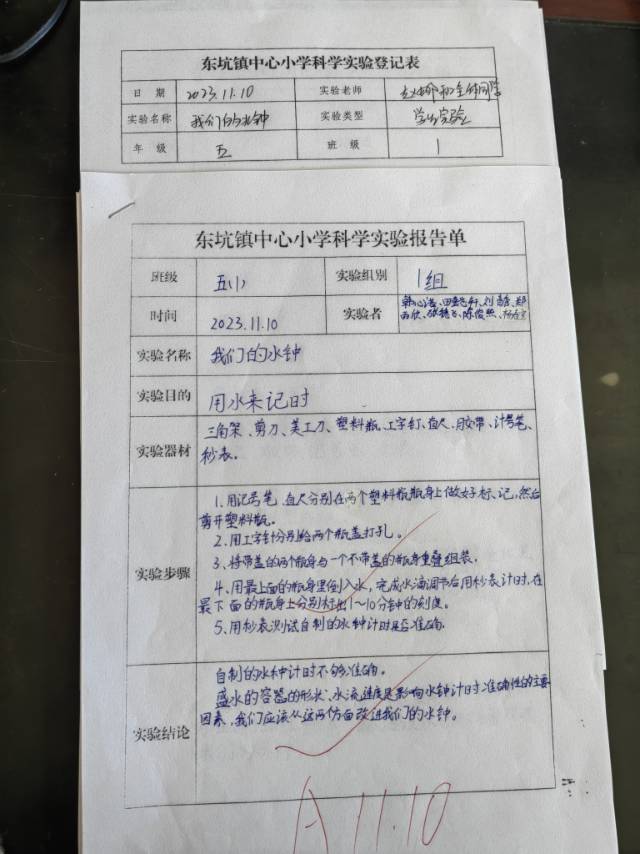 东坑镇中心小学科学实验登记表
日 期 2023.11.10 实验老师 和全体同学
实验名称 我们的水钟 实验类型 学生实验
年 级 五 班 级 1
东坑镇中心小学科学实验报告单
班级 五(1) 实验组别 1组
时间 2023.11.10 实验者
实验名称 我们的水钟
实验目的 用水来记时
实验器材 三角架、剪刀、美工刀、塑料瓶、工字钉、直尺、胶带、计号笔、
秒表。
实验步骤
1、用记号笔、直尺分别在两个塑料瓶瓶身上做好标记,然后
剪开塑料瓶。
2、用工字钉分别给两个瓶盖打孔。
3、将带盖的两个瓶身与一个不带盖的瓶身重叠组装。
4、用最上面的瓶身里倒入水,完成水滴调节后用秒表计时,在
最下面的瓶身上分别标出1~10分钟的刻度。
5、用秒表测试自制的水钟计时是否准确.
实验结论
自制的水钟计时不够准确。
盛水的容器的形状、水流速度是影响水钟计时准确性的主要
因素,我们应该从这两个方面改进我们的水钟。
A 11.10